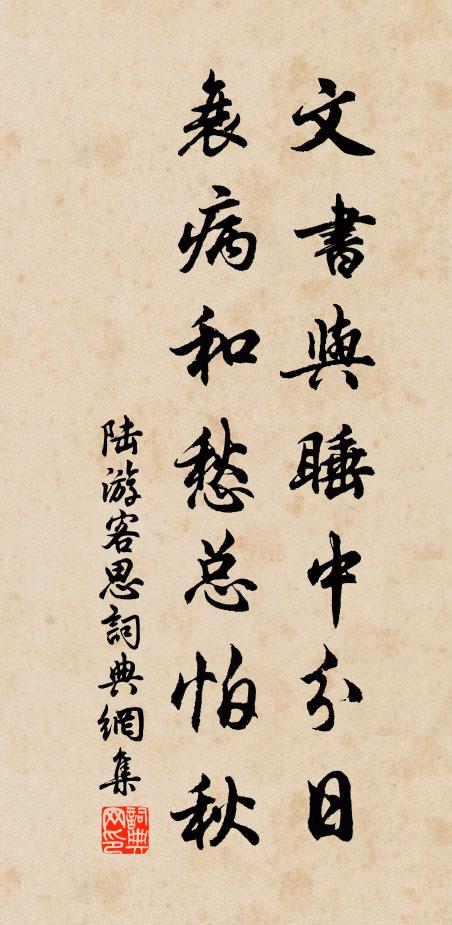 文書與睡中分日
衰病和愁总怕秋
陆游客思詞典網集
詞典网印